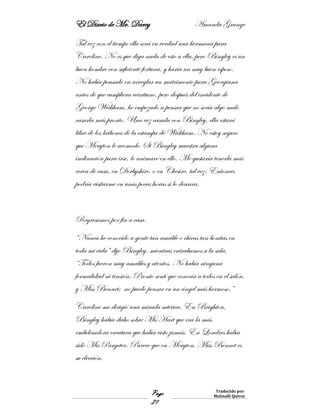 El Diario de Mr. Darcy Amanda Grange
Tal vez con el tiempo ella será en verdad una hermana para
Caroline. No es que diga nada de esto a ella, pero Bingley es un
buen hombre con suficiente fortuna, y haría un muy buen esposo.
No había pensado en arreglar un matrimonio para Georgiana
antes de que cumpliera veintiuno, pero después del incidente de
George Wickham, he empezado a pensar que no sería algo malo
casarla más pronto. Una vez casada con Bingley, ella estará
libre de los bribones de la estampa de Wickham. No estoy seguro
que Meryton le acomode. Si Bingley muestra alguna
inclinación para irse, lo animare en ello. Me gustaría tenerla más
cerca de casa, en Derbyshire, o en Chesire, tal vez. Entonces
podría visitarme en unas pocas horas si lo deseara.
Regresamos por fin a casa.
"Nunca he conocido a gente tan amable o chicas tan bonitas en
toda mi vida" dijo Bingley, mientras entrabamos a la sala.
"Todos fueron muy amables y atentos. No había ninguna
formalidad ni tensión. Pronto sentí que conocía a todos en el salón,
y Miss Bennet; no puedo pensar en un ángel más hermoso."
Caroline me dirigió una mirada satírica. En Brighton,
Bingley había dicho sobre Mis Hart que era la más
embelesadora creatura que había visto jamás. En Londres había
sido Mis Pargeter. Parece que en Meryton, Miss Bennet es
su elección.
Page
27
Traducido por:
Malinalli Quiroz